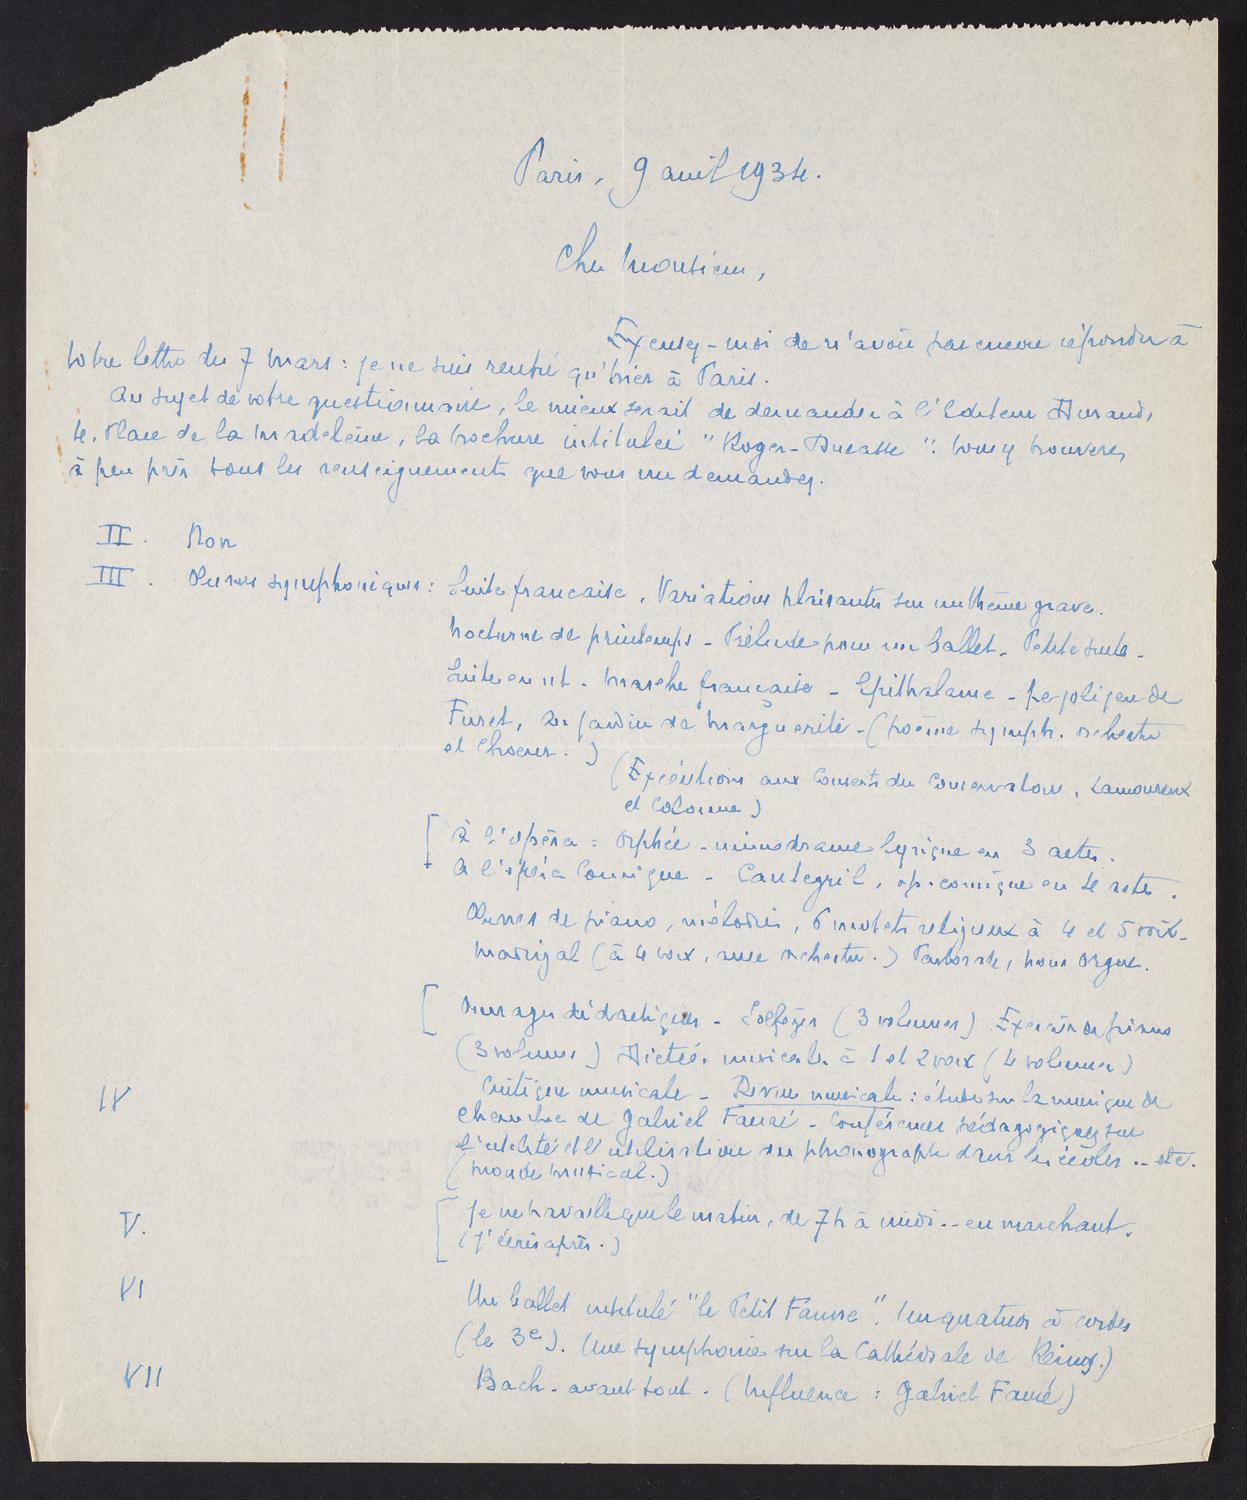 Paris, 9 avril 1934.
Cher Monsieur,
Excusez-moi de n'avoir pas encore répondu à
votre lettre du 7 mars : je ne suis rentré qu'hier à Paris.
Au sujet de votre questionnaire, le mieux serait de demander à l'éditeur Durand,
4, Place de la Madeleine, la brochure intitulée "Roger-Ducasse" : vous y trouverez
à peu près tous les renseignements que vous me demandez.
II. Non
III. Œuvres symphoniques : Suite française, Variations plaisantes sur un thème grave.
Nocturne de printemps - Prélude pour un ballet. Petite suite -
Suite en ut - Marche française - Epithalame - Le joli jeu de
Furet, Au jardin de Marguerite - (poème symph. orchestre
et chœurs.)
(Exécutions aux Concerts du Conservatoire, Lamoureux
et Colonne)
à l'opéra = Orphée - mimodrame lyrique en 3 actes.
A l'opéra Comique - Cantegril, op. comique en 4 actes.
Œuvres de piano, mélodies, 6 motets religieux à 4 et 5 voix -
Madrigal (à 4 voix, avec orchestre.) Pastorale, pour orgue.
Ouvrages didactiques - Solfèges (3 volumes) Exercices de piano
(3 volumes) Dictées musicales à 1 et 2 voix (4 volumes)
IV Critique musicale - Revue musicale : étude sur la musique de
chambre de Gabriel Fauré - Conférences pédagogiques sur
l'utilité et l'utilisation du phonographe dans les écoles .. etc.
(Monde musical.)
V. Je ne travaille que le matin, de 7h à midi .. en marchant.
(J'écris après.)
VI Un ballet intitulé "le Petit Faune". Un quatuor à cordes
(le 3e). Une symphonie sur la Cathédrale de Reims.)
VII Bach - avant tout - (Influence : Gabriel Fauré)